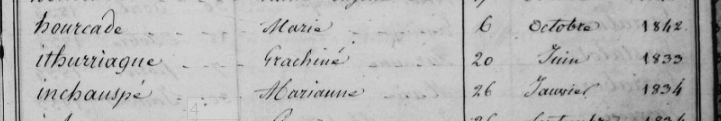 hourcade Marie 6 Octobre 1842
ithurriague Grachiné 20 Juin 1833
inchauspé Marianne 26 Janvier 1834